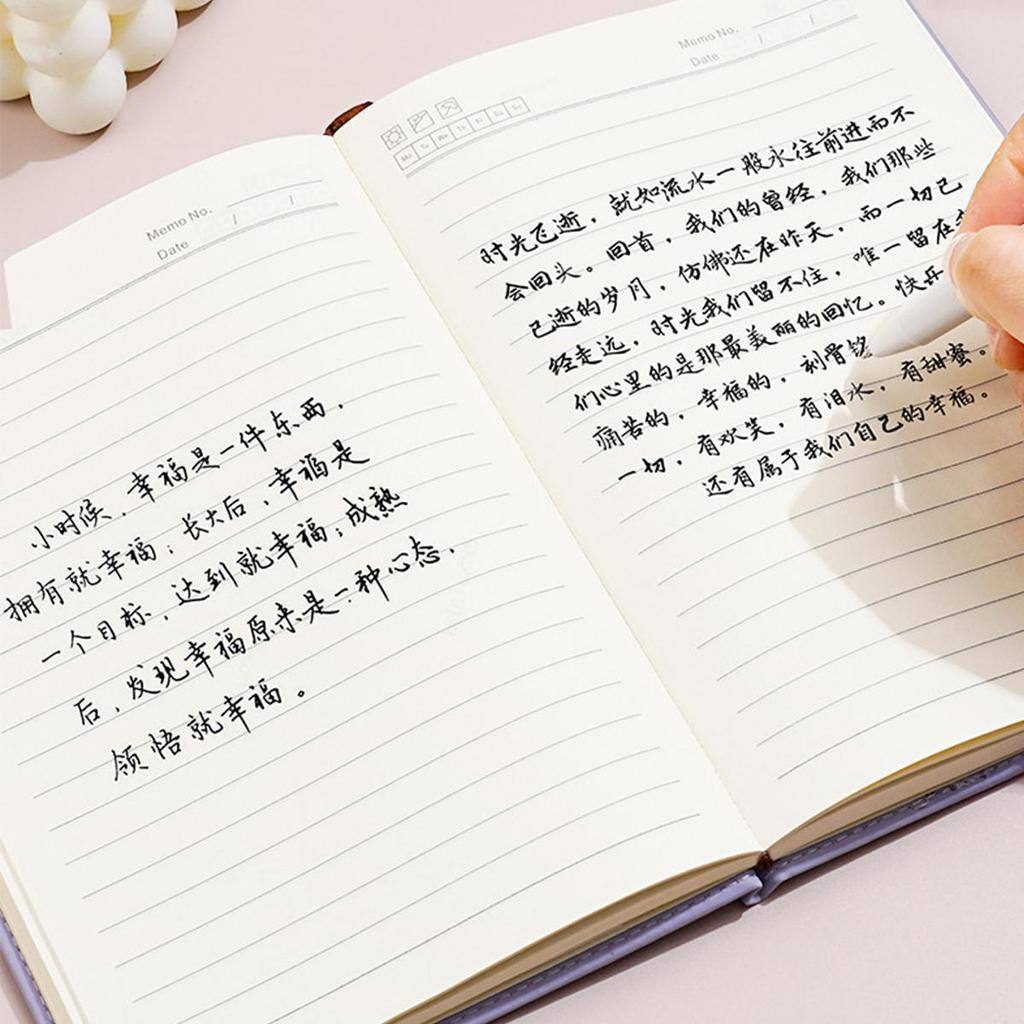 Memo No.
Date / /
小时候，幸福是一件东西，
拥有就幸福；长大后，幸福是
一个目标，达到就幸福；成熟
后，发现幸福原来是一种心态，
领悟就幸福。
Memo No.
Date / /
Mo Tu We Th Fr Sa Su
时光飞逝，就如流水一般永往前进而不
会回头。回首，我们的曾经，我们那些
已逝的岁月，仿佛还在昨天，而一切已
经走远，时光我们留不住，唯一留在
们心里的是那最美丽的回忆。快乐
痛苦的，幸福的，刻骨铭
一切，有欢笑，有泪水，有甜蜜。
还有属于我们自己的幸福。